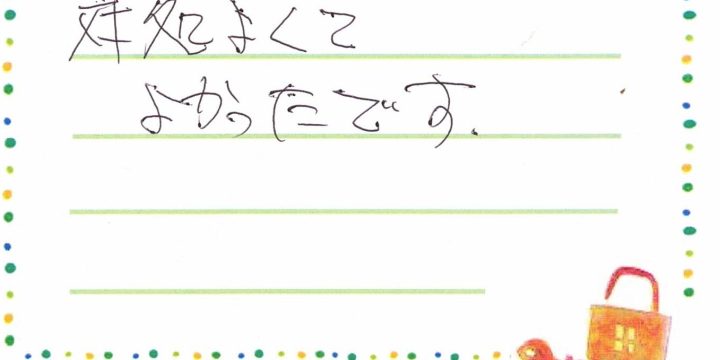 対処よくて
よかったです.